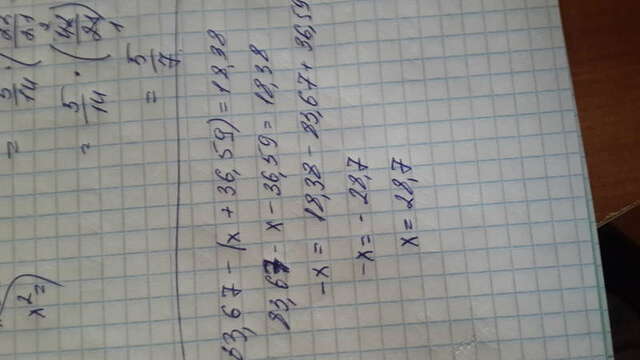 x² =)
= 5/14 · ( 22/21
= 5/14 · ( 42/21 ) 2 1
= 5/7
83,67 - (x + 36,59) = 18,38
83,67 - x - 36,59 = 18,38
-x = 18,38 - 83,67 + 36,59
-x = - 28,7
x = 28,7